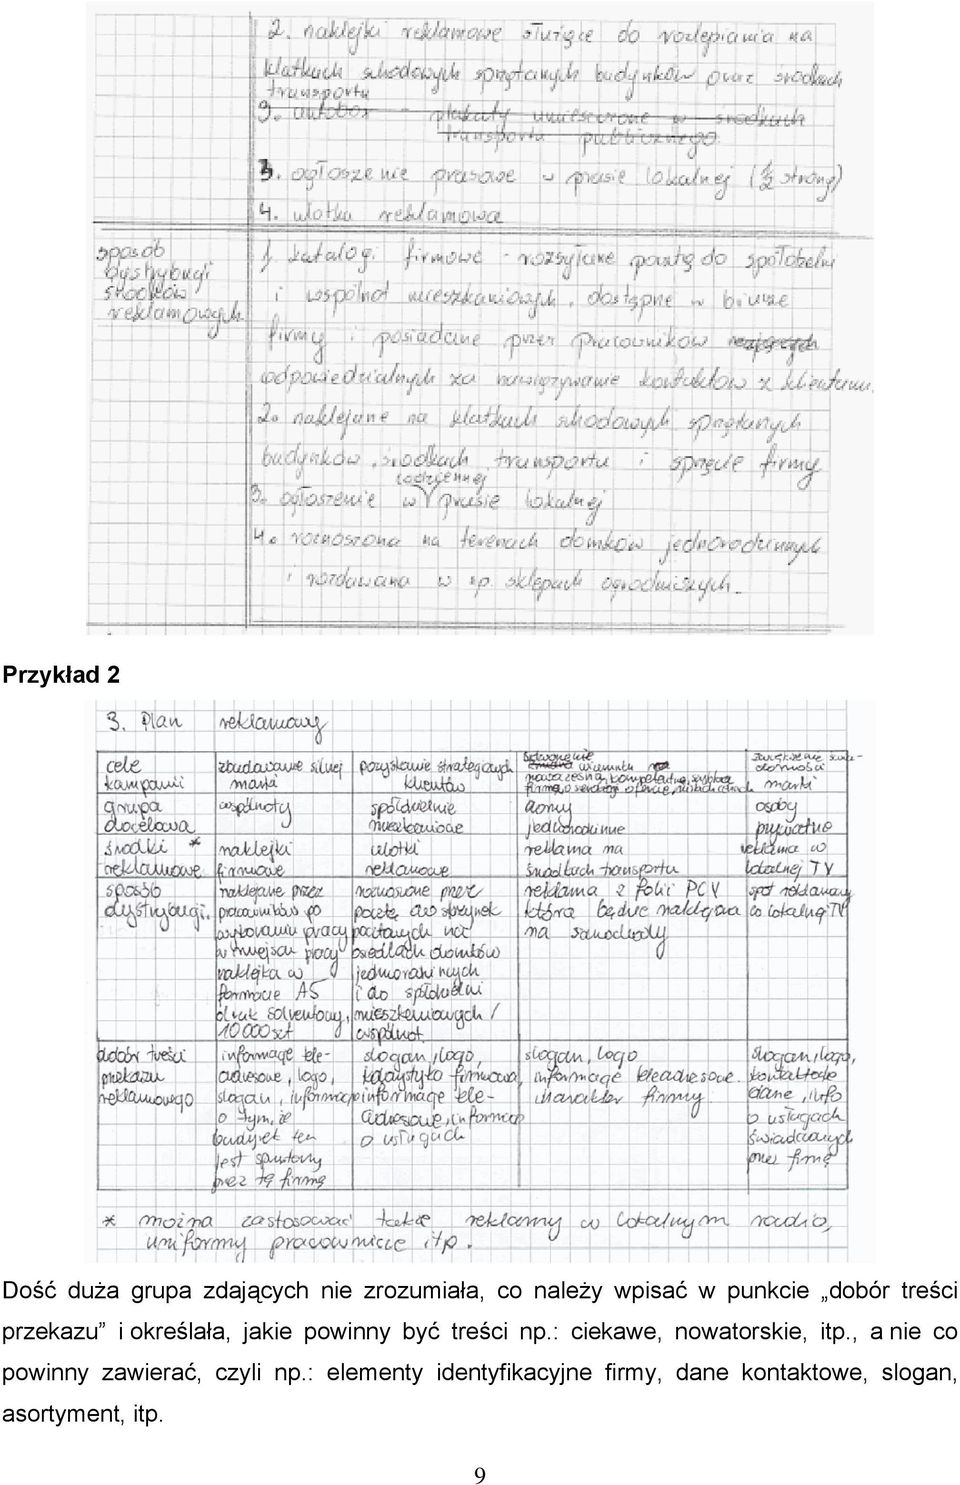 2. naklejki reklamowe służące do rozlepiania na
klatkach schodowych sprzątanych budynków oraz środkach
transportu
3. autobox - plakaty umieszczone w środkach
transportu publicznego.
3. ogłoszenie prasowe w prasie lokalnej (½ strony)
4. ulotka reklamowa
sposób
dystrybucji
środków
reklamowych
1. katalogi firmowe - rozsyłane pocztą do spółdzielni
i wspólnot mieszkaniowych, dostępne w biurze
firmy i posiadane przez pracowników
odpowiedzialnych za nawiązywanie kontaktów z klientami.
2. naklejane na klatkach schodowych sprzątanych
budynków, środkach transportu i sprzęcie firmy
codziennej
3. ogłoszenie w prasie lokalnej
4. roznoszona na terenach domków jednorodzinnych
i rozdawana w np. sklepach ogrodniczych.
Przykład 2
3. Plan reklamowy
cele kampanii
zbudowanie silnej marki
pozyskanie strategicznych klientów
Stworzenie wizerunku nowoczesna, kompetentna, szybka firma, o szerokiej ofercie, niskich cenach
Zwiększenie świadomości marki
grupa docelowa
wspólnoty
spółdzielnie mieszkaniowe
domy jednorodzinne
osoby prywatne
środki * reklamowe
naklejki firmowe
ulotki reklamowe
reklama na środkach transportu
reklama w lokalnej TV
sposób dystrybucji.
naklejane przez pracowników po wykonaniu pracy w miejscu pracy naklejka w formacie A5 druk solventowy, 10 000 szt
roznoszone przez pocztę do skrzynek pocztowych na osiedlach domków jednorodzinnych i do spółdzielni mieszkaniowych / wspólnot.
reklama z folii PCV która będzie naklejona na samochody
spot reklamowy w lokalnej TV
dobór treści przekazu reklamowego
informacje teleadresowe, logo, slogan, informacje o tym, że budynek ten jest sprzątany przez tę firmę
slogan, logo, kolorystyka firmowa, informacje teleadresowe, informacje o usługach
slogan, logo informacje teleadresowe. charakter firmy
slogan, logo, kontaktowe dane, info o usługach świadczonych przez firmę
* można zastosować także reklamy w lokalnym radio,
uniformy pracownicze itp.
Dość duża grupa zdających nie zrozumiała, co należy wpisać w punkcie „dobór treści
przekazu” i określała, jakie powinny być treści np.: ciekawe, nowatorskie, itp., a nie co
powinny zawierać, czyli np.: elementy identyfikacyjne firmy, dane kontaktowe, slogan,
asortyment, itp.
9